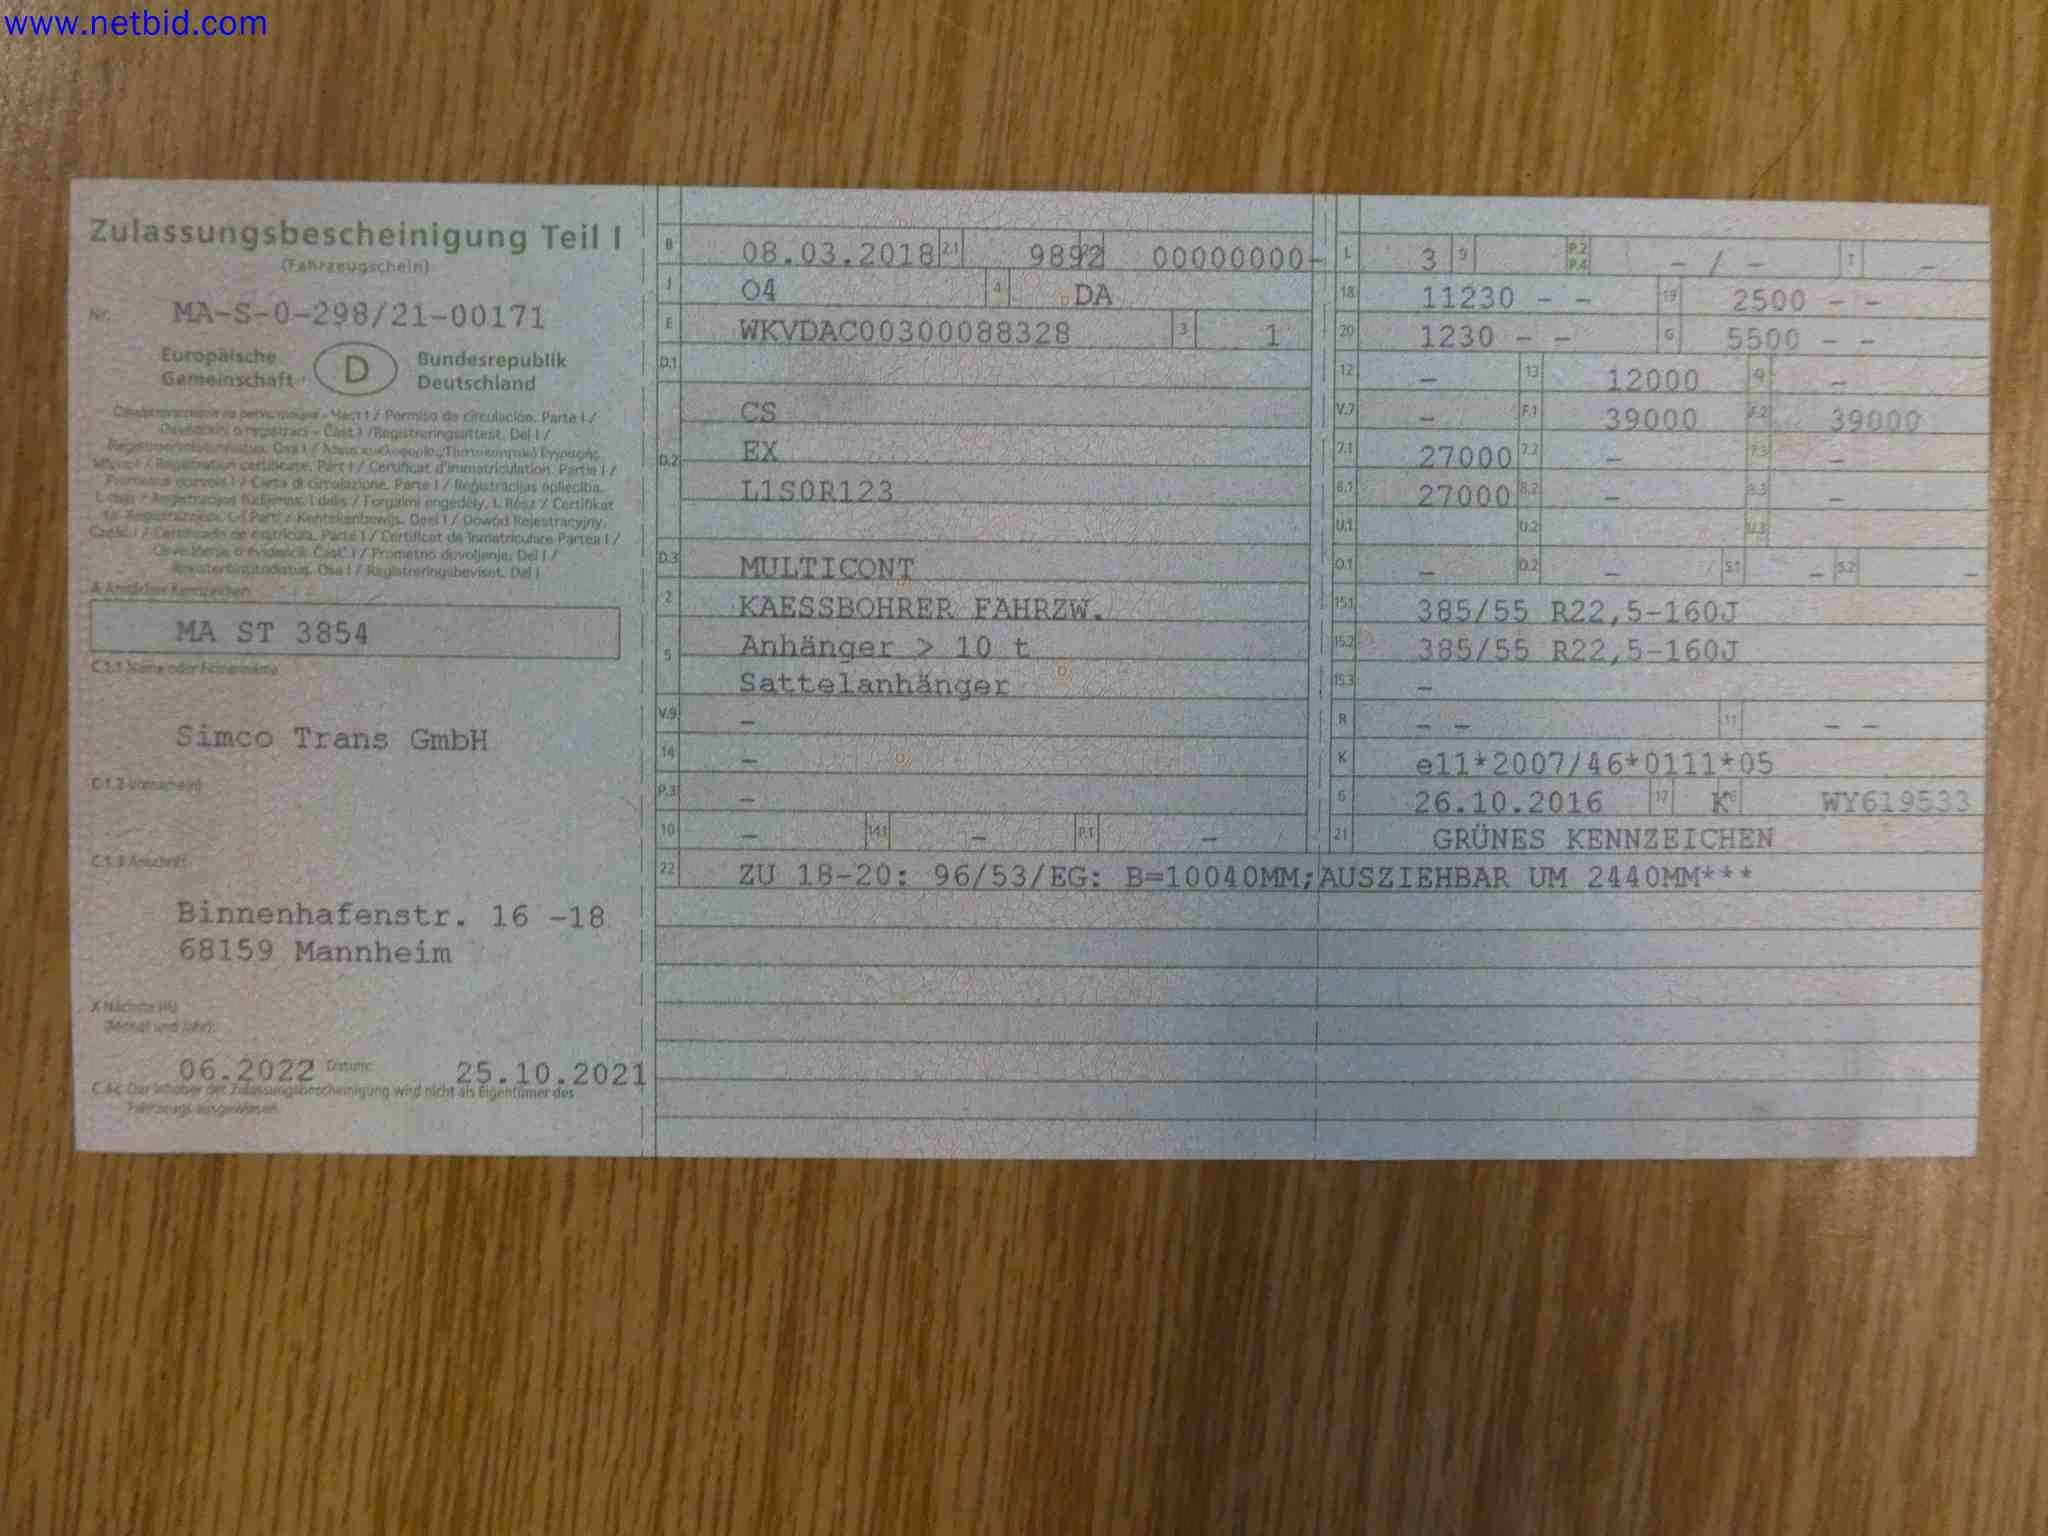 www.netbid.com
Zulassungsbescheinigung Teil I
(Fahrzeugschein)
Nr. MA-S-0-298/21-00171
Europäische Gemeinschaft D Bundesrepublik Deutschland
Permiso de circulación. Parte I /
Registreringsattest. Del I /
Registration certificate. Part I / Certificat d'immatriculation. Partie I /
Carta di circolazione. Parte I / Reģistrācijas apliecība.
A Amtliches Kennzeichen
MA ST 3854
C.1.1 Name oder Firmenname
Simco Trans GmbH
C.1.2 Vorname(n)
C.1.3 Anschrift
Binnenhafenstr. 16 -18
68159 Mannheim
X Nächste HU
(Monat und Jahr):
06.2022 Datum: 25.10.2021
C.4c Der Inhaber der Zulassungsbescheinigung wird nicht als Eigentümer des
Fahrzeugs ausgewiesen.
B 08.03.2018 2.1 9892 00000000-
J O4 4 DA
E WKVDAC00300088328 3 1
D.1
CS
D.2 EX
L1S0R123
D.3 MULTICONT
2 KAESSBOHRER FAHRZW.
5 Anhänger > 10 t
Sattelanhänger
V.9 -
14 -
P.3 -
10 - 14.1 - P.1 -
L 3 9 P.2 P.4 - / - T -
18 11230 - - 19 2500 - -
20 1230 - - G 5500 - -
12 - 13 12000 Q -
V.7 - F.1 39000 F.2 39000
7.1 27000 7.2 - 7.3 -
8.1 27000 8.2 - 8.3 -
U.1 U.2 U.3
O.1 - O.2 - S.1 - S.2 -
15.1 385/55 R22,5-160J
15.2 385/55 R22,5-160J
15.3 -
R - - 11 - -
K e11*2007/46*0111*05
6 26.10.2016 17 K 16 WY619533
21 GRÜNES KENNZEICHEN
22 ZU 18-20: 96/53/EG: B=10040MM;AUSZIEHBAR UM 2440MM***